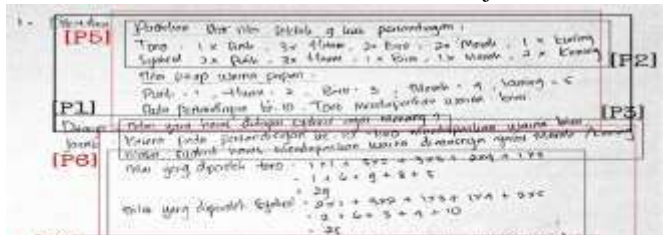 1.
[P5] Perhatikan
Toro 1 x Putih, 3x Hitam, 3x Biru, 2x Merah, 1 x Kuning
Syahrul 2x Putih, 3x Hitam, 1x Biru, 1x Merah, 2 x Kuning
[P2]
Nilai tiap warna papan:
Putih = 1, Hitam = 2, Biru = 3, Merah = 4, Kuning = 5
[P1] Pada pertandingan ke-10 Toro mendapatkan warna biru [P3]
nilai yang harus didapat Syahrul agar menang?
Karena pada pertandingan ke-10 Toro mendapatkan warna biru
[P6] maka Syahrul harus mendapatkan warna
nilai yang diperoleh Toro = 1x1 + 3x2 + 3x3 + 2x4 + 1x5
= 1 + 6 + 9 + 8 + 5
= 29
nilai yang diperoleh Syahrul = 2x1 + 3x2 + 1x3 + 1x4 + 2x5
= 2 + 6 + 3 + 4 + 10
= 25